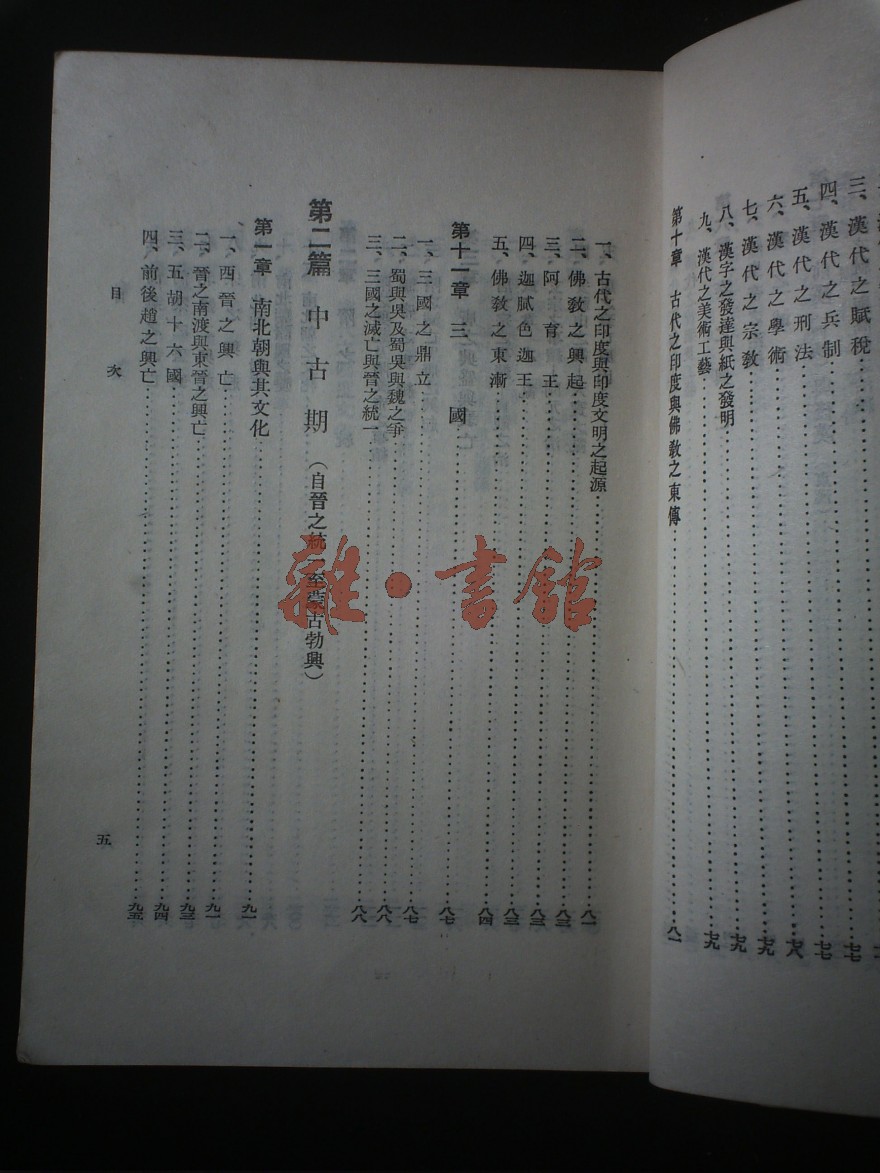 三、漢代之賦稅
四、漢代之兵制……七七
五、漢代之刑法……七七
六、漢代之學術……七八
七、漢代之宗教……七九
八、漢字之發達與紙之發明……七九
九、漢代之美術工藝……七九
第十章 古代之印度與佛教之東傳……八一
一、古代之印度與印度文明之起源……八一
二、佛教之興起……八三
三、阿育王……八三
四、迦膩色迦王……八三
五、佛教之東漸……八四
第十一章 三國……八七
一、三國之鼎立……八七
二、蜀與吳及蜀吳與魏之爭……八八
三、三國之滅亡與晉之統一……八八
第二篇 中古期(自晉之統一至蒙古勃興)
第一章 南北朝與其文化……九一
一、西晉之興亡……九一
二、晉之南渡與東晉之興亡……九三
三、五胡十六國……九四
四、前後趙之興亡……九五
目次 五
雜·書館